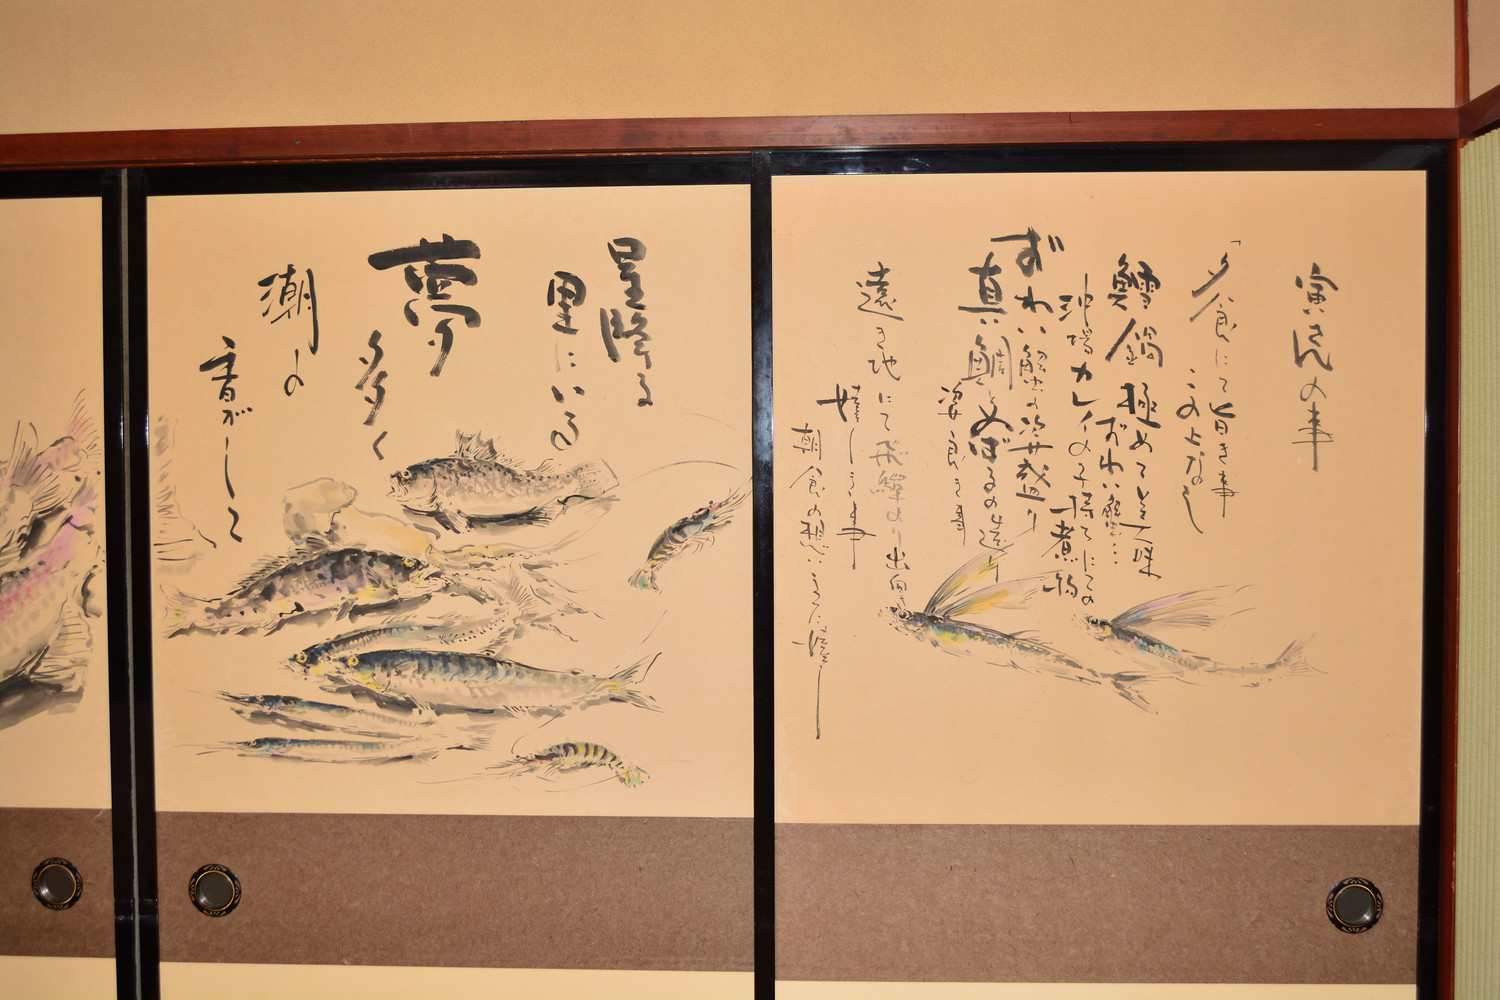 寅さんの事
「夕食にて旨き事
この上なし
鱈鍋極めて美味
ずわい蟹…
沖場カレイの子持てにての
煮物
ずわい蟹の姿盛り
真鯛とめばるの造り
姿良き事
遠き地にて飛騨より出向き
嬉しき事
朝食の想いまた
星降る
里にいる
夢
多く
潮の
香がして